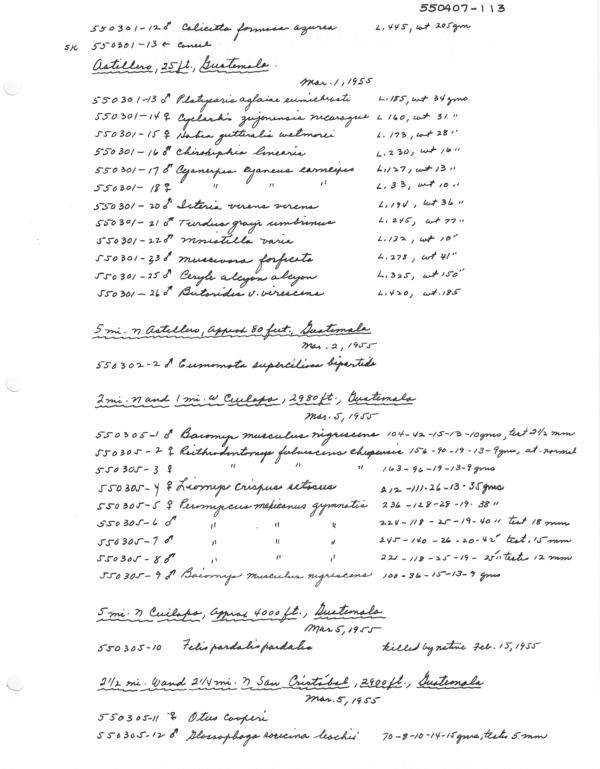 550407-113
550301-12 ♂ Calicitta formosa azurea L. 445, wt 205gm
SK 550301-13 ← Cancel
Astillero, 25 ft., Guatemala.
Mar. 1, 1955
550301-13 ♂ Platypsaris aglaiae sumichrasti L. 185, wt 34 gms
550301-14 ♀ Cyclarhis gujanensis nicaraguae L 160, wt 31 "
550301-15 ♀ Habia gutturalis wetmorei L. 173, wt 28 "
550301-16 ♂ Chiroxiphia linearis L. 230, wt 16 "
550301-17 ♂ Cyanerpes cyaneus carneipes L. 127, wt 13 "
550301-18 ♀ " " " L. 33, wt 10 "
550301-20 ♂ Icteria virens virens L. 194, wt 36 "
550301-21 ♂ Turdus grayi umbrinus L. 245, wt 77 "
550301-22 ♂ Mniotilla varia L. 132, wt 10 "
550301-23 ♂ Muscivora forficata L. 278, wt 41 "
550301-25 ♂ Ceryle alcyon alcyon L. 325, wt 150 "
550301-26 ♂ Butorides v. virescens L. 420, wt. 185
5 mi. N Astillero, approx 80 feet, Guatemala
Mar. 2, 1955
550302-2 ♂ Eumomota superciliosa bipartita
2 mi. N and 1 mi. W Cuilapa, 2980 ft., Guatemala
Mar. 5, 1955
550305-1 ♂ Baiomys musculus nigrescens 104-42-15-13-10gms, test 2 1/2 mm
550305-2 ♀ Reithrodontomys fulvescens chiapensis 156-90-19-13-9gms, al. normal
550305-3 ♀ " " " 163-96-19-13-9 gms
550305-4 ♀ Liomys crispus setosus 212-111-26-13-35gms
550305-5 ♀ Peromyscus mexicanus gymnotis 236-128-28-19-38 "
550305-6 ♂ " " " 224-118-25-19-40 " test 18 mm
550305-7 ♂ " " " 245-140-26-20-42 " test. 15 mm
550305-8 ♂ " " " 221-118-25-19-25 " testes 12 mm
550305-9 ♂ Baiomys musculus nigrescens 100-36-15-13-9 gms
5 mi. N Cuilapa, approx 4000 ft., Guatemala
Mar 5, 1955
550305-10 Felis pardalis pardalis killed by native Feb. 15, 1955
2 1/2 mi. W and 2 1/4 mi. N San Cristóbal, 2900 ft., Guatemala
Mar. 5, 1955
550305-11 ♀ Otus cooperi
550305-12 ♂ Glossophaga soricina leachii 70-8-10-14-15 gms, testes 5 mm